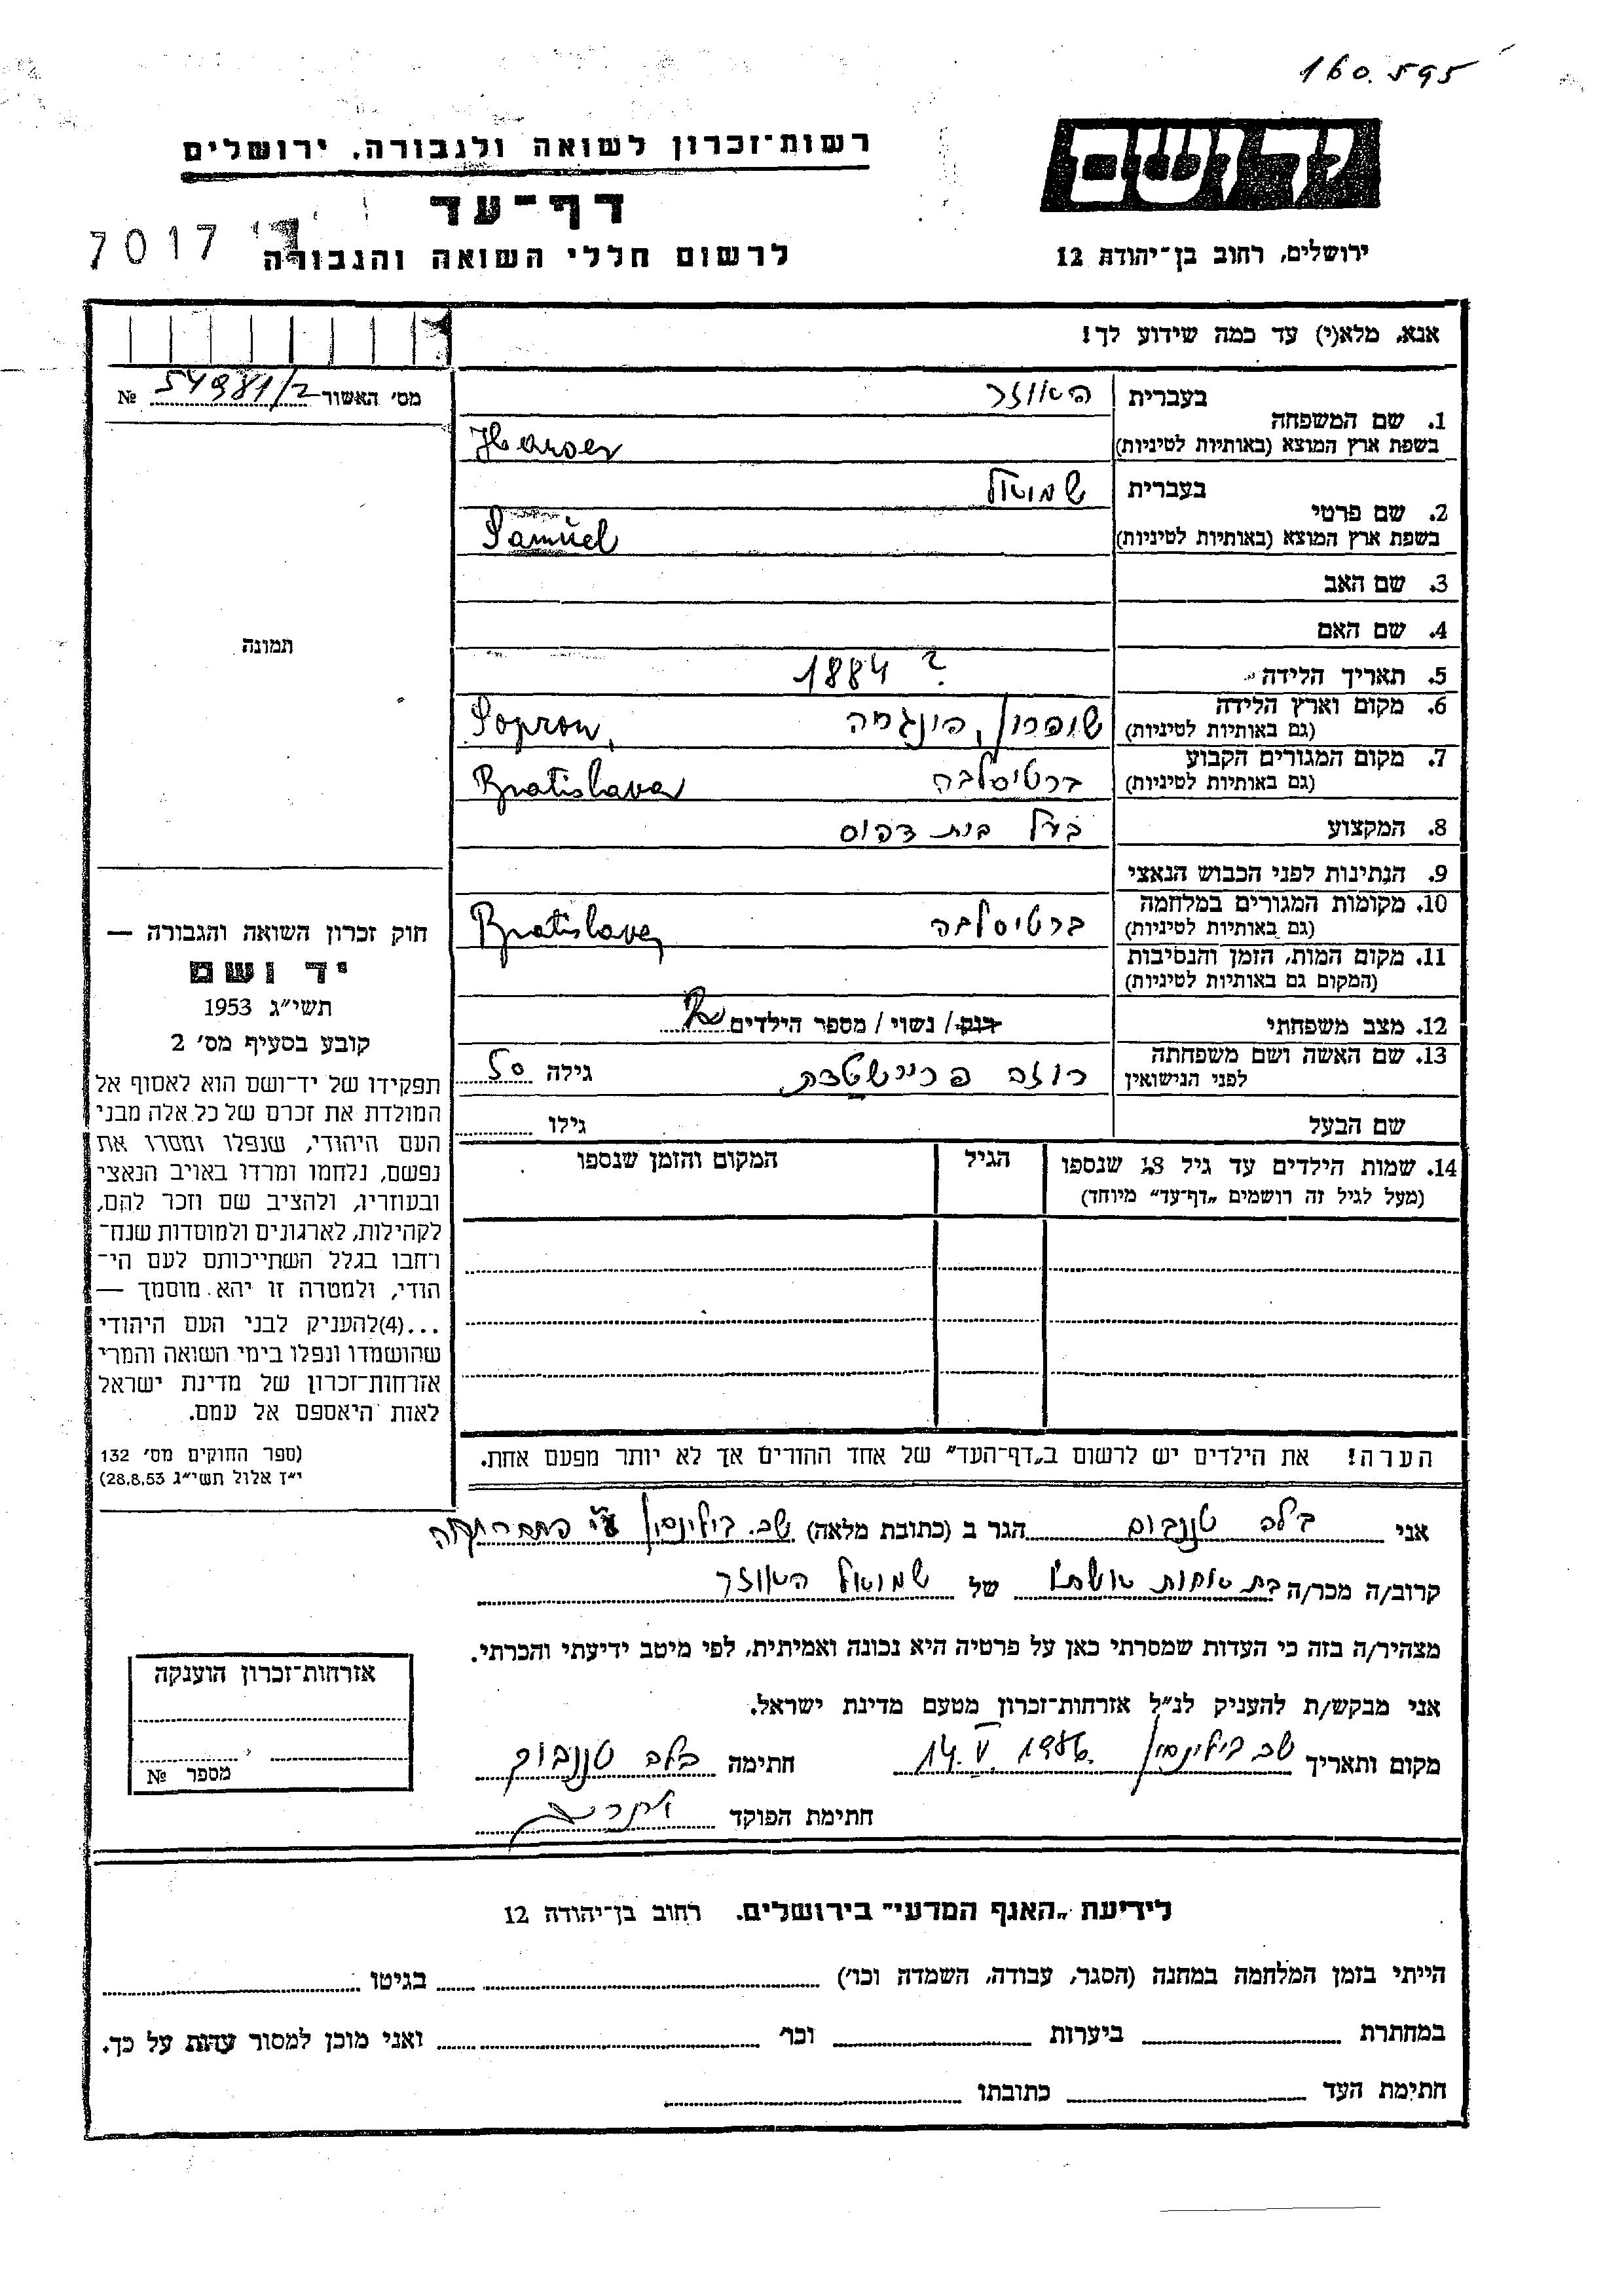 160.595
יד ושם
ירושלים, רחוב בן־יהודה 12
רשות־זכרון לשואה ולגבורה, ירושלים
דף־עד
לרשום חללי השואה והגבורה
7017
אנא, מלא(י) עד כמה שידוע לך!
מס׳ האשור 54981/2 №
1. שם המשפחה
בעברית האוזר
בשפת ארץ המוצא (באותיות לטיניות) Hauser
2. שם פרטי
בעברית שמואל
בשפת ארץ המוצא (באותיות לטיניות) Samuel
3. שם האב
4. שם האם
5. תאריך הלידה 1884 ?
6. מקום וארץ הלידה
(גם באותיות לטיניות) שופרון, הונגריה Sopron,
7. מקום המגורים הקבוע
(גם באותיות לטיניות) ברטיסלבה Bratislava
8. המקצוע בעל בית דפוס
9. הנתינות לפני הכבוש הנאצי
10. מקומות המגורים במלחמה
(גם באותיות לטיניות) ברטיסלבה Bratislava
11. מקום המות, הזמן והנסיבות
(המקום גם באותיות לטיניות)
12. מצב משפחתי רווק / נשוי / מספר הילדים
13. שם האשה ושם משפחתה
לפני הנישואין רוזה גילה 50
שם הבעל גילו
14. שמות הילדים עד גיל 18 שנספו הגיל המקום והזמן שנספו
(מעל לגיל זה רושמים „דף־עד” מיוחד)
תמונה
חוק זכרון השואה והגבורה —
יד ושם
תשי״ג 1953
קובע בסעיף מס׳ 2
תפקידו של יד־ושם הוא לאסוף אל
המולדת את זכרם של כל אלה מבני
העם היהודי, שנפלו ומסרו את
נפשם, נלחמו ומרדו באויב הנאצי
ובעוזריו, ולהציב שם וזכר להם,
לקהילות, לארגונים ולמוסדות שנח־
רחבו בגלל השתייכותם לעם הי־
הודי, ולמטרה זו יהא מוסמך —
...(4)להעניק לבני העם היהודי
שהושמדו ונפלו בימי השואה והמרי
אזרחות־זכרון של מדינת ישראל
לאות היאספם אל עמם.
(ספר החוקים מס׳ 132
י״ז אלול תשי״ג 28.8.53)
הערה! את הילדים יש לרשום ב„דף־העד” של אחד ההורים אך לא יותר מפעם אחת.
אני בלה טננבוים הגר ב (כתובת מלאה) שכ. בילינסון ע״י פתח תקוה
קרוב/ה מכר/ה בת אחות אשתו של שמואל האוזר
מצהיר/ה בזה כי העדות שמסרתי כאן על פרטיה היא נכונה ואמיתית, לפי מיטב ידיעתי והכרתי.
אני מבקש/ת להעניק לנ״ל אזרחות־זכרון מטעם מדינת ישראל.
מקום ותאריך שכ בילינסון 14.V. חתימה בלה טננבוים
חתימת הפוקד
אזרחות־זכרון הוענקה
מספר №
לידיעת „האגף המדעי” בירושלים. רחוב בן־יהודה 12
הייתי בזמן המלחמה במחנה (הסגר, עבודה, השמדה וכו׳) בגיטו
במחתרת ביערות וכו׳ ואני מוכן למסור עדות על כך.
חתימת העד כתובתו